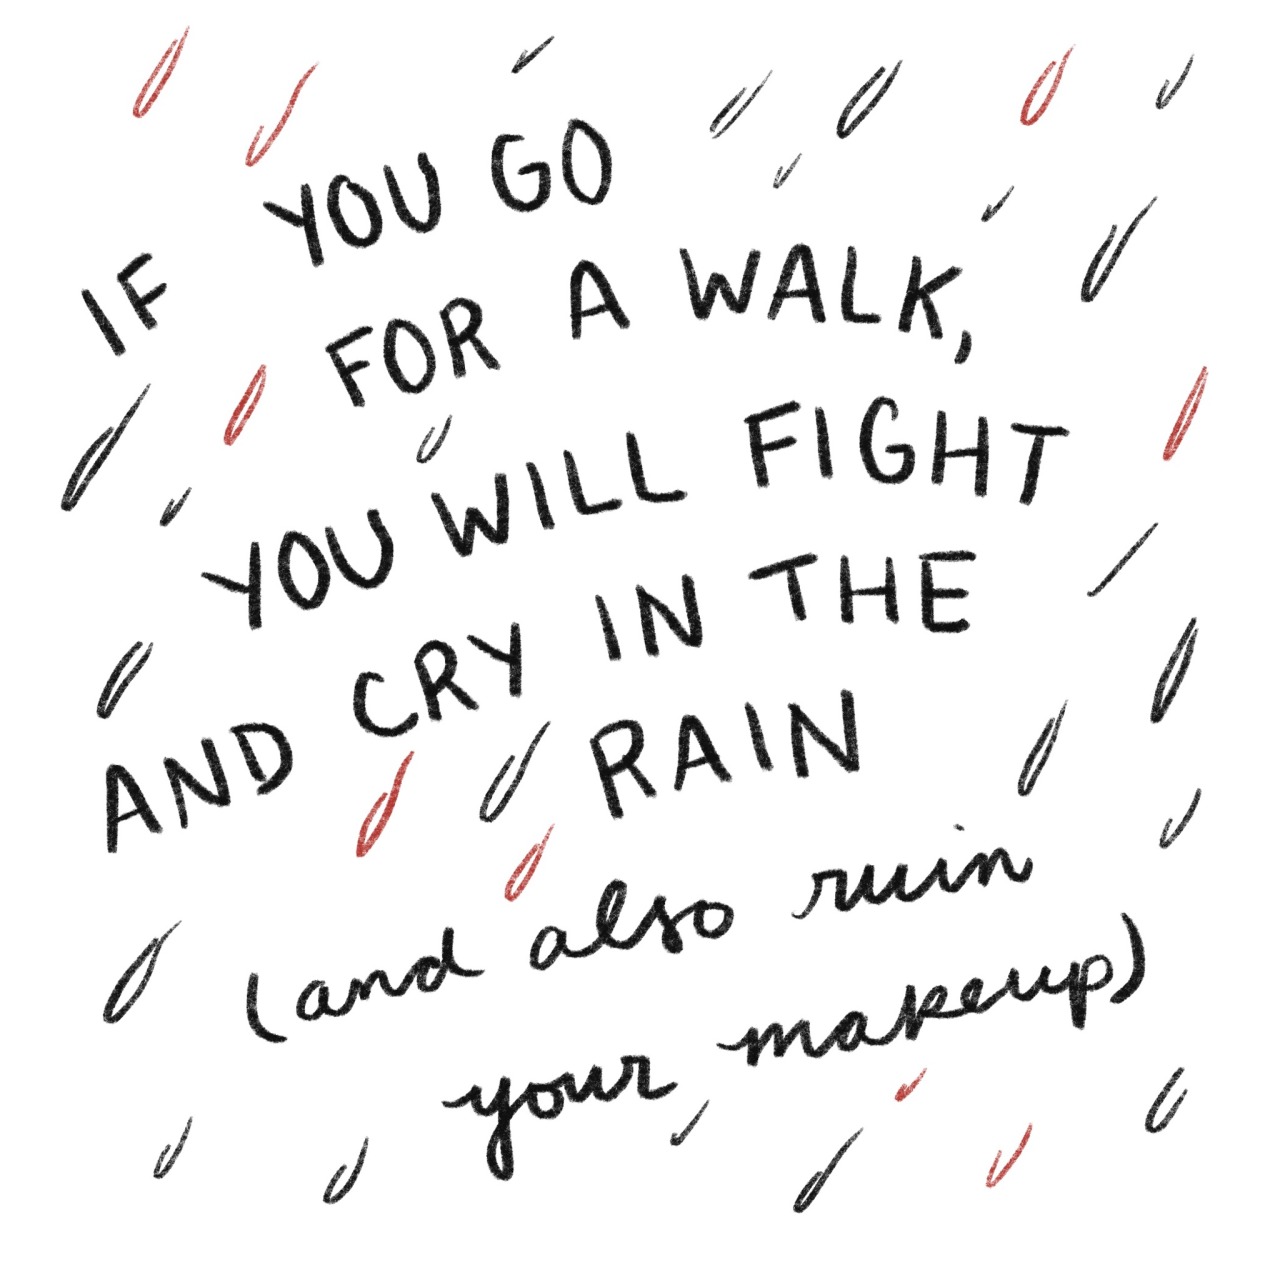 IF YOU GO
FOR A WALK,
YOU WILL FIGHT
AND CRY IN THE
RAIN
(and also ruin
your makeup)